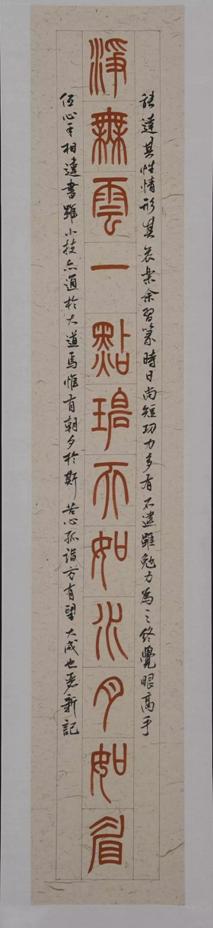 淨無雲一點碧天如水月如眉
達其性情形其哀樂余習篆時日尚短功力多有不逮雖勉力為之終覺眼高手
低心手相違書雖小技亦通於大道焉惟有朝夕於斯苦心孤詣方有望大成也新記